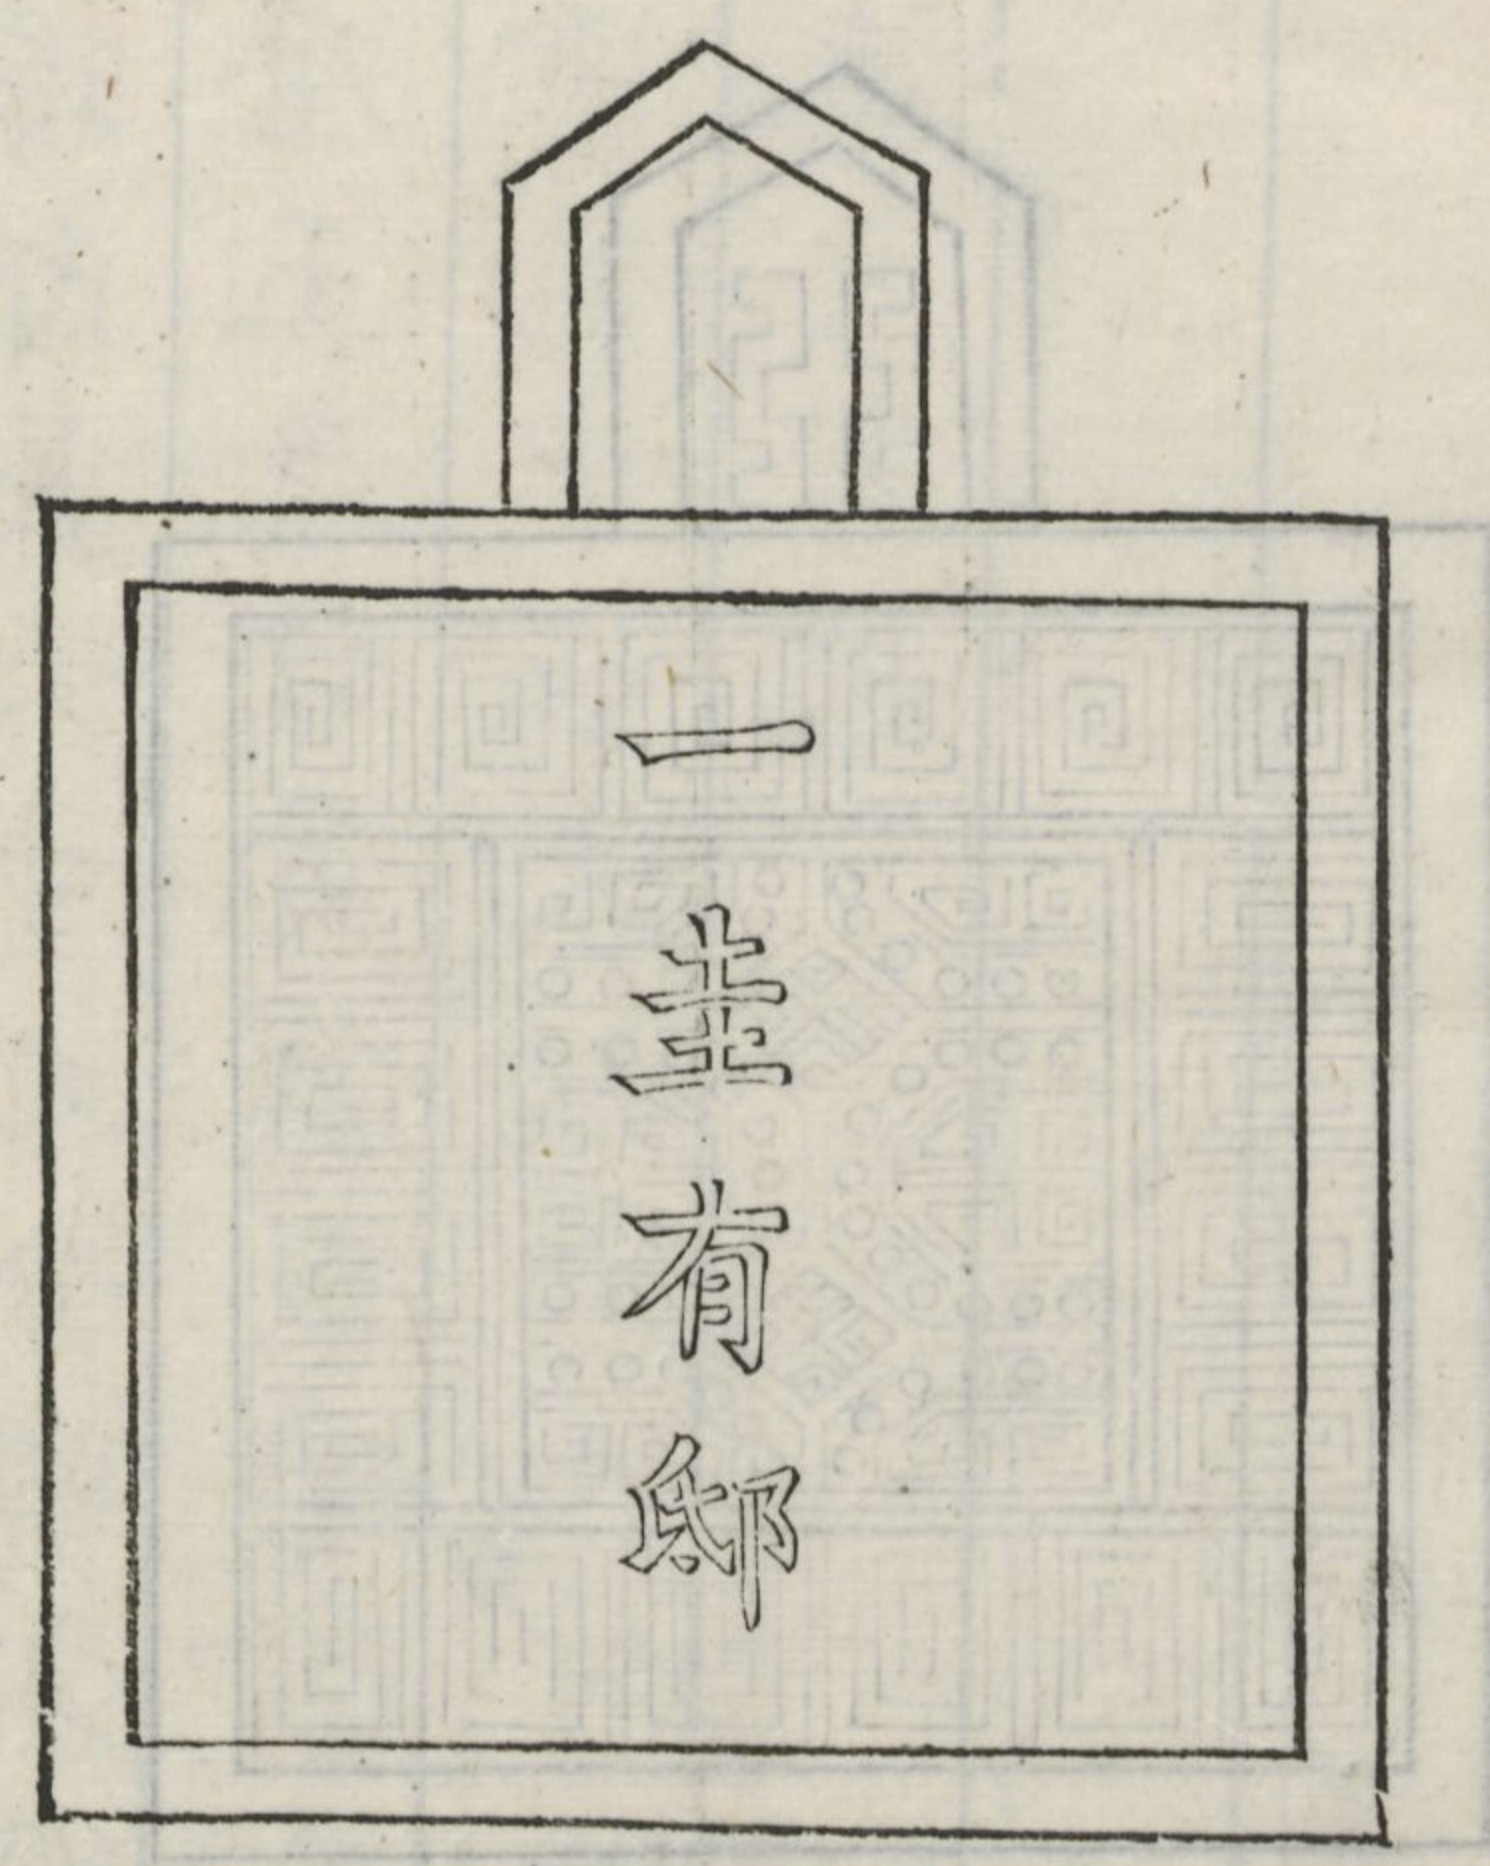 一圭有邸